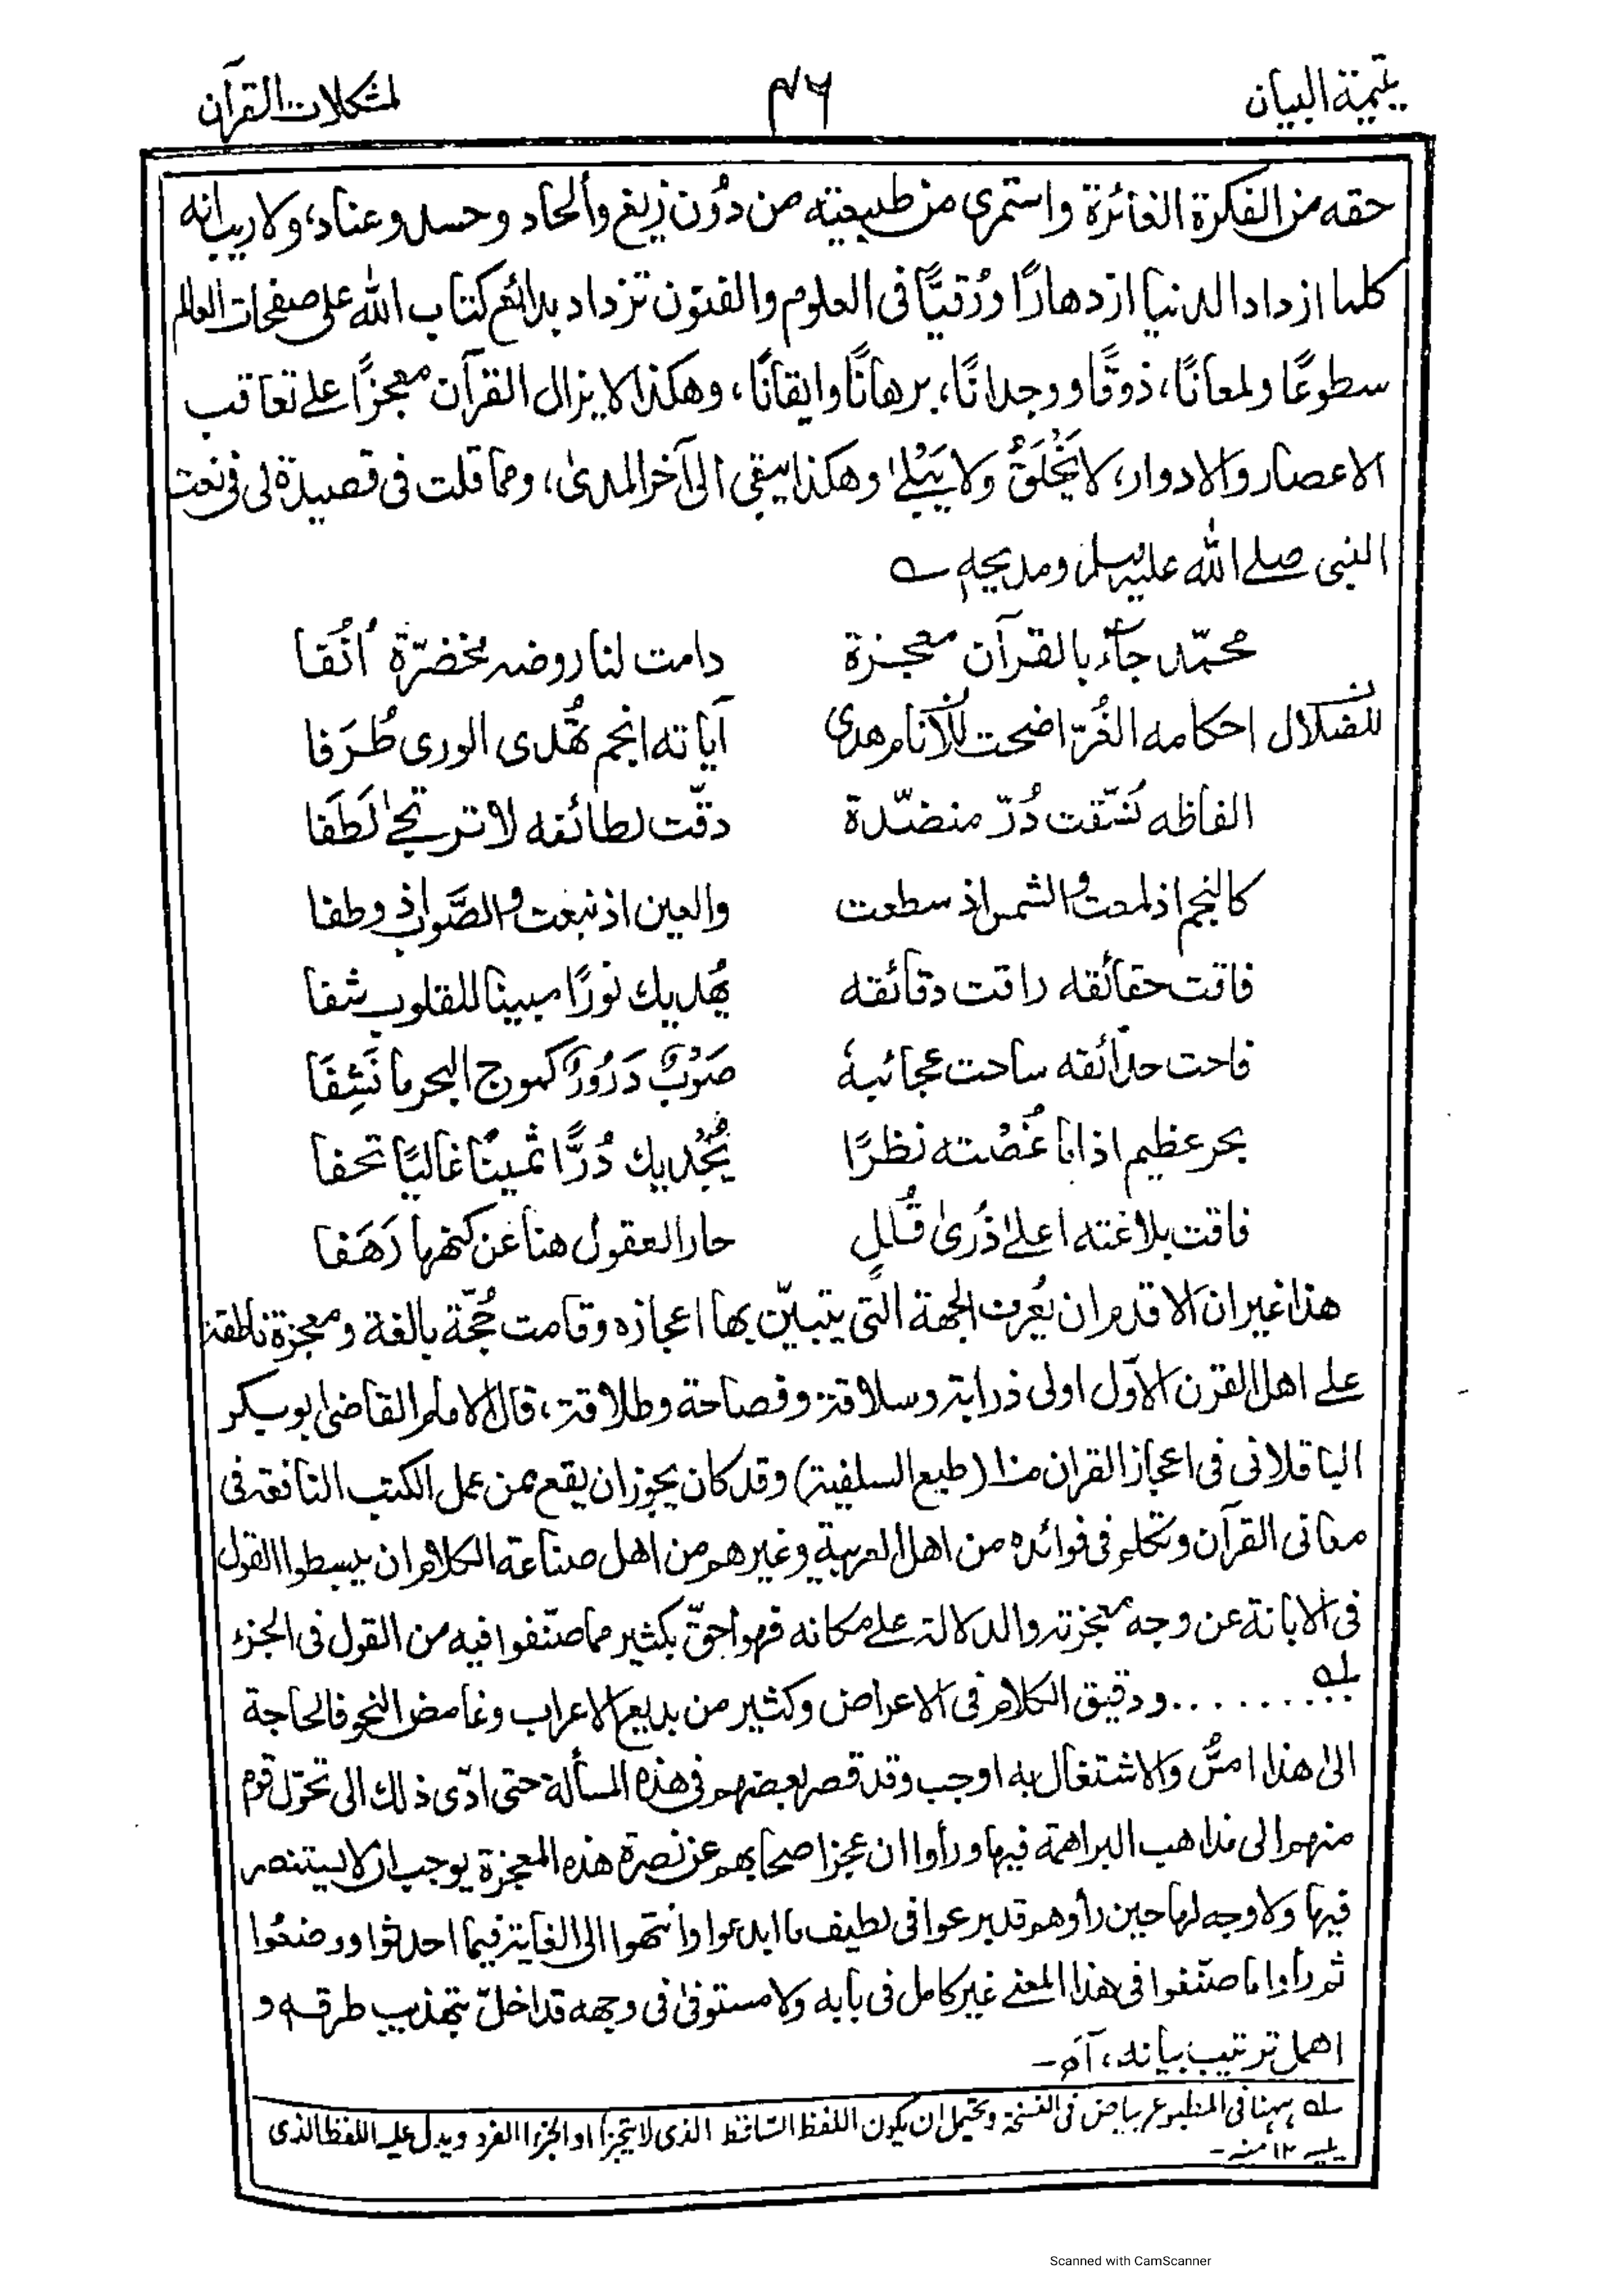 يتيمة البيان
٤٦
لمشكلات القرآن
حقه من الفكرة الغائرة واستمرى من طبيعيته من دُون زيغ وألحاد وحسد وعناد، ولا ريب انه
كلما ازداد الدنيا ازدهارًا ورُقيًّا فى العلوم والفنون تزداد بدائع كتاب الله على صفحات العالم
سطوعًا ولمعانًا، ذوقًا ووجدانًا، برهانًا وايقانًا، وهكذا لا يزال القرآن معجزًا على تعاقب
الاعصار والادوار، لا يَخْلَقُ ولا يَبْلىٰ وهكذا يبقى الى آخر المدىٰ، ومما قلت فى قصيدة لى فى نعت
النبى صلے الله عليه وسلم ومديحه؂
محمّد جآء بالقرآن معجزة دامت لنا روضه مخضرّة اُنُفا
للضلال احكامه الغُرّ اضحت للانام هدى آياته انجم تُهدى الورى طُرَفا
الفاظه نُسّقت دُرّ منضّدة دقّت لطائفه لا ترتجىٰ لَطَفَا
كالنجم اذ لمعت والشمس اذ سطعت والعين اذ نبعت والصَّوب اذ وطفا
فاقت حقائقه راقت دقائقه يُهديك نورًا مبينا للقلوب شفا
فاحت حدائقه ساحت عجائبه صَوْبٌ دَرُورٌ كموج البحر ما نَشِفَا
بحر عظيم اذا ما غُصْته نظرًا يُجْديك دُرًّا ثمينًا غاليًا تحفا
فاقت بلاغته اعلىٰ ذُرىٰ قُللٍ حار العقول هنا عن كنهها رَهَفا
هذا غير ان الاقدم ان يُعرف الجهة التى يتبيّن بها اعجازه وقامت حُجّة بالغة ومعجزة ناطقة
على اهل القرن الآول اولى ذرابة وسلاقة وفصاحة وطلاقة، قال الامام القاضى ابو بكر
الباقلانى فى اعجاز القران مذا (طبع السلفية) وقد كان يجوز ان يقع ممن عمل الكتب النافعة فى
معانى القرآن وتكلم فى فوائده من اهل العربية وغيرهم من اهل صناعة الكلام ان يبسطوا القول
فى الابانة عن وجه معجزته والدلالة على مكانه فهو احقّ بكثير مما صنّفوا فيه من القول فى الجزء
....... ؂ه ودقيق الكلام فى الاعراض وكثير من بديع الاعراب وغامض النحو فالحاجة
الىٰ هذا امسُّ والاشتغال به اوجب وقد قصر بعضهم فى هذه المسألة حتى ادّى ذلك الى تحوّل قوم
منهم الى مذاهب البراهمة فيها ورأوا ان عجز اصحابهم عن نصرة هذه المعجزة يوجب ان لا يستنصر
فيها ولا وجه لها حين رأوهم قد برعوا فى لطيف ما ابدعوا وانتهوا الى الغاية فيما احدثوا ووضعُوا
ثم رأوا ما صنّفوا فى هذا المعنے غير كامل فى بابه ولا مستوفىٰ فى وجهه قد اخلّ بتهذيب طرقه و
اهمل ترتيب بيانه، آه۔
؂ه ههنا فى المطبوع بياض فى النسخة ويحتمل ان يكون اللفظ الساقط الذى لا يتجزأ او الجزء الفرد ويدل عليه اللفظ الذى
يليه ١٢ منه۔
Scanned with CamScanner